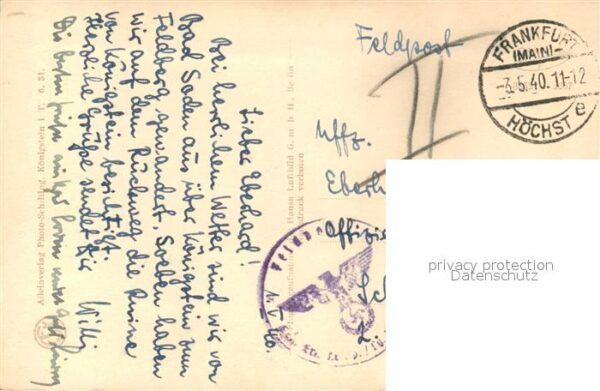 Feldpost
II
FRANKFURT
(MAIN)
-3.5.40.11-12
HÖCHST
e
Uffz.
Eberh
Offizi
Sc
2
privacy protection
Datenschutz
1.V.40.
Lieber Eberhard!
Bei herrlichem Wetter sind wir von
Bad Soden aus über Königstein zum
Feldberg gewandert. Soeben haben
wir auf dem Rückweg die Ruine
von Königstein besichtigt.
Herzliche Grüße sendet Dir
Willi
Die besten
Hansa Luftbild G. m. b. H.
druck verboten
Alleinverlag Photo-Schilling, Königstein i. T. 6. 51.